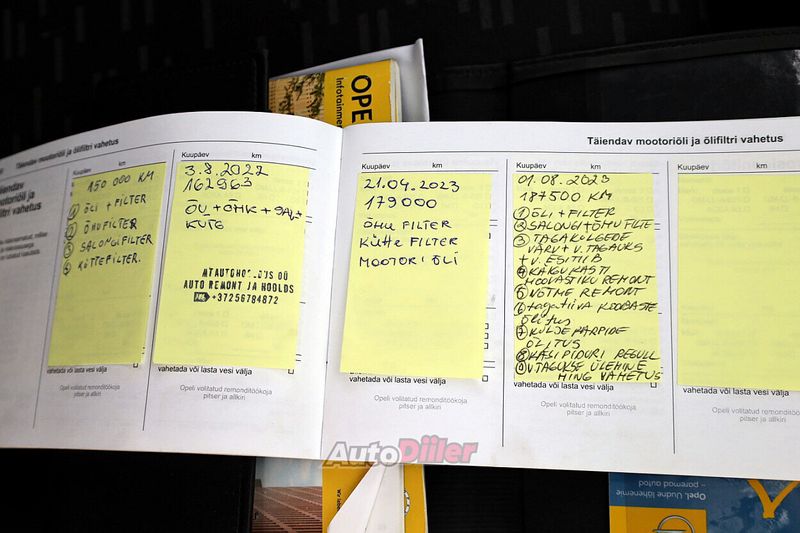 OPE
Infotainme
Täiendav mootoriõli ja õlifiltri vahetus
Täiendav mootoriõli ja õlifiltri vahetus
Täiendav
mootoriõli ja
õlifiltri vahetus
Kuupäev km
150 000 KM
① ÕLI + FILTER
② ÕHUFILTER
③ SALONGIFILTER
KÜTTEFILTER.
vahetada või lasta vesi välja
Opeli volitatud remonditöökoja
pitser ja allkiri
Kuupäev km
3.8.2022
162963
ÕLI + ÕHK +
KÜTE
AUTO REMONT JA HOOLDS
+37256784872
vahetada või lasta vesi välja
Opeli volitatud remonditöökoja
pitser ja allkiri
Kuupäev km
21.04.2023
179000
ÕHU FILTER
KÜTTE FILTER
MOOTORI ÕLI
vahetada või lasta vesi välja
Opeli volitatud remonditöökoja
pitser ja allkiri
Kuupäev km
01.08.2023
187500 KM
① ÕLI + FILTER
② SALONGI + ÕHU FILTE
③ TAGAKÜLGEDE
VÄRV + V. TAGAUKS
+ V. ESITIIB
④ KÄIGUKASTI
HOOVASTIKU REMONT
⑤ VÕTME REMONT
⑥ tagatiiva KOOBASTE
ÕLITUS
⑦ KÜLJE KARPIDE
ÕLITUS
⑧ KÄSIPIDURI REGULL
V TAGUKSE ÜLEMINE
HING VAHETUS
vahetada või lasta vesi välja
Opeli volitatud remonditöökoja
pitser ja allkiri
Kuupäev km
vahetada või lasta vesi
Opeli volitatud
pitser ja
AutoDiiler
Opel. Uudne lähenemie
– paremad autod